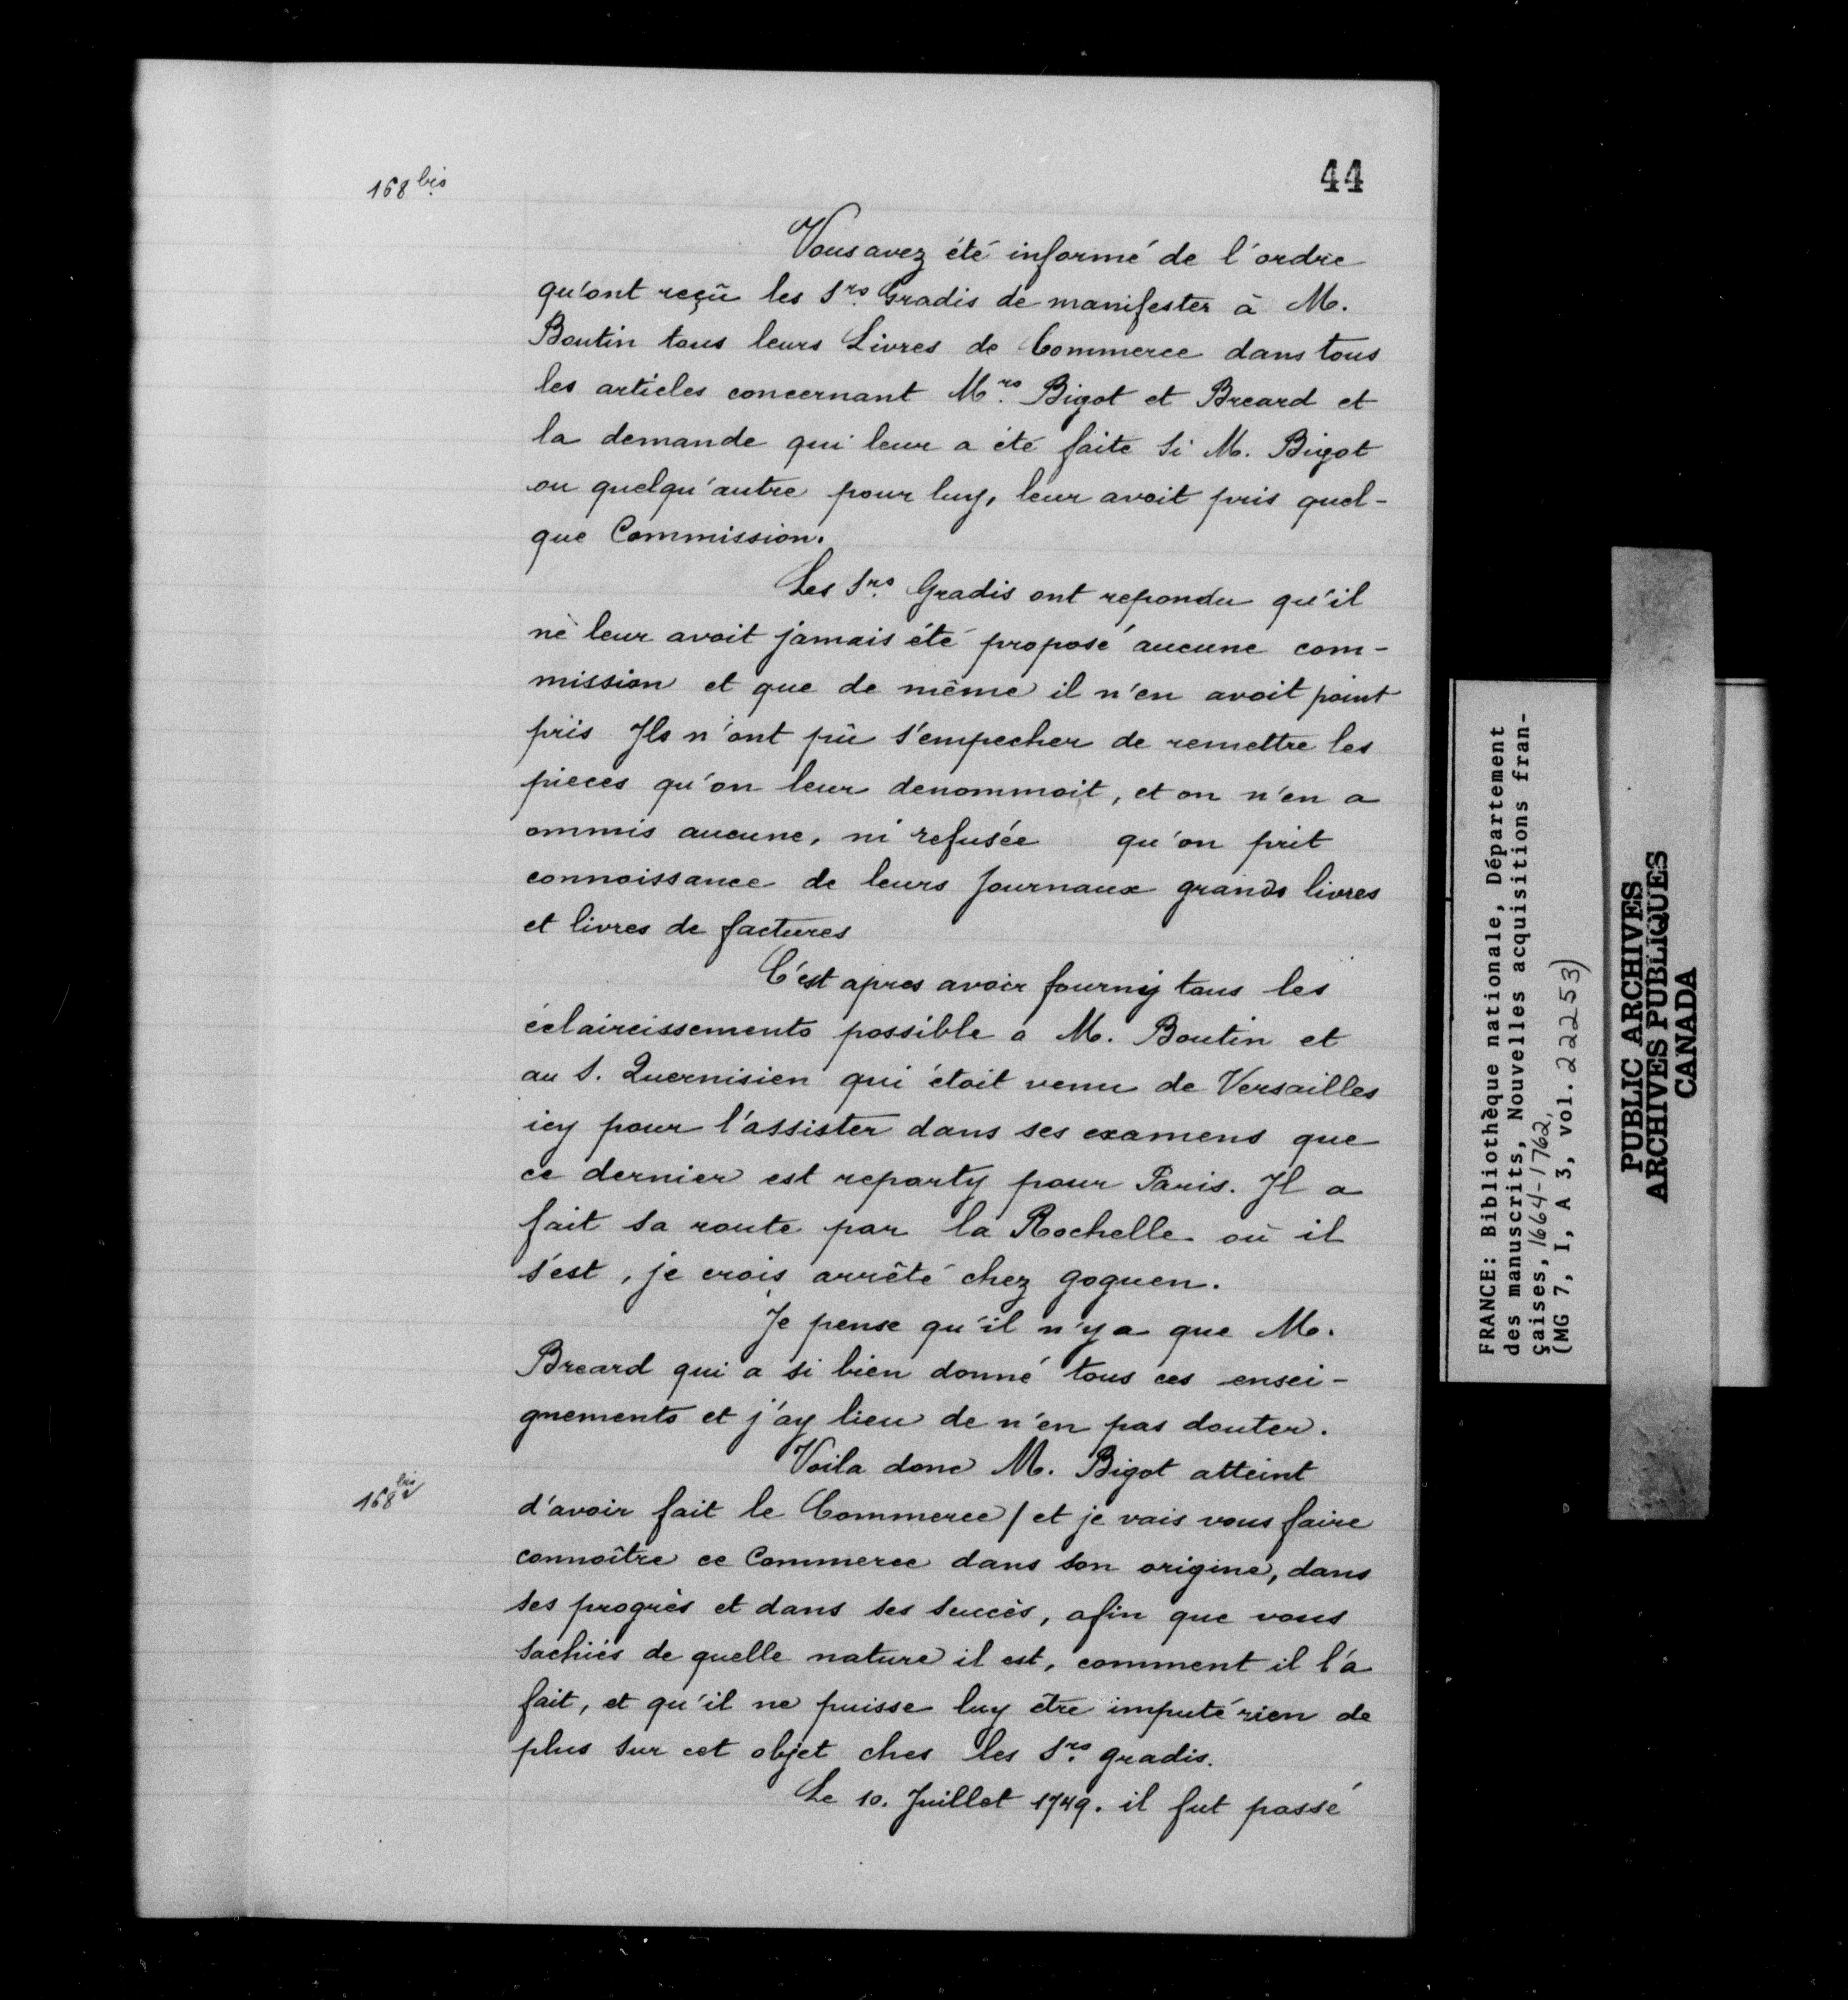 44
168 bis
Vous avez été informé de l'ordre
qu'ont reçû les Srs. Gradis de manifester à M.
Boutin tous leurs Livres de Commerce dans tous
les articles concernant Mrs. Bigot et Breard et
la demande qui leur a été faite Si M. Bigot
ou quelqu'autre pour luy, leur avoit pris quel-
que Commission.
Les Srs. Gradis ont repondu qu'il
ne leur avoit jamais été proposé aucune com-
mission et que de même il n'en avoit point
pris Ils n'ont pû s'empecher de remettre les
pieces qu'on leur denommoit, et on n'en a
ommis aucune, ni refusée qu'on prit
connoissance de leurs Journaux grands livres
et livres de factures
C'est apres avoir fourny tous les
éclaircissements possible a M. Boutin et
au S. Quernisien qui étoit venu de Versailles
icy pour l'assister dans ses examens que
ce dernier est reparty pour Paris. Il a
fait sa route par la Rochelle où il
s'est, je crois arrêté chez goguen.
Je pense qu'il n'y a que M.
Breard qui a si bien donné tous ces ensei-
gnements et j'ay lieu de n'en pas douter.
Voila donc M. Bigot atteint
168 bis v
d'avoir fait le Commerce / et je vais vous faire
connoître ce Commerce dans son origine, dans
ses progrès et dans ses succès, afin que vous
sachiés de quelle nature il est, comment il l'a
fait, et qu'il ne puisse luy être imputé rien de
plus sur cet objet ches les Srs. gradis.
Le 10. Juillet 1749. il fut passé
FRANCE: Bibliothèque nationale, Département
des manuscrits, Nouvelles acquisitions fran-
çaises, 1664-1762,
(MG 7, I, A 3, vol. 22253)
PUBLIC ARCHIVES
ARCHIVES PUBLIQUES
CANADA